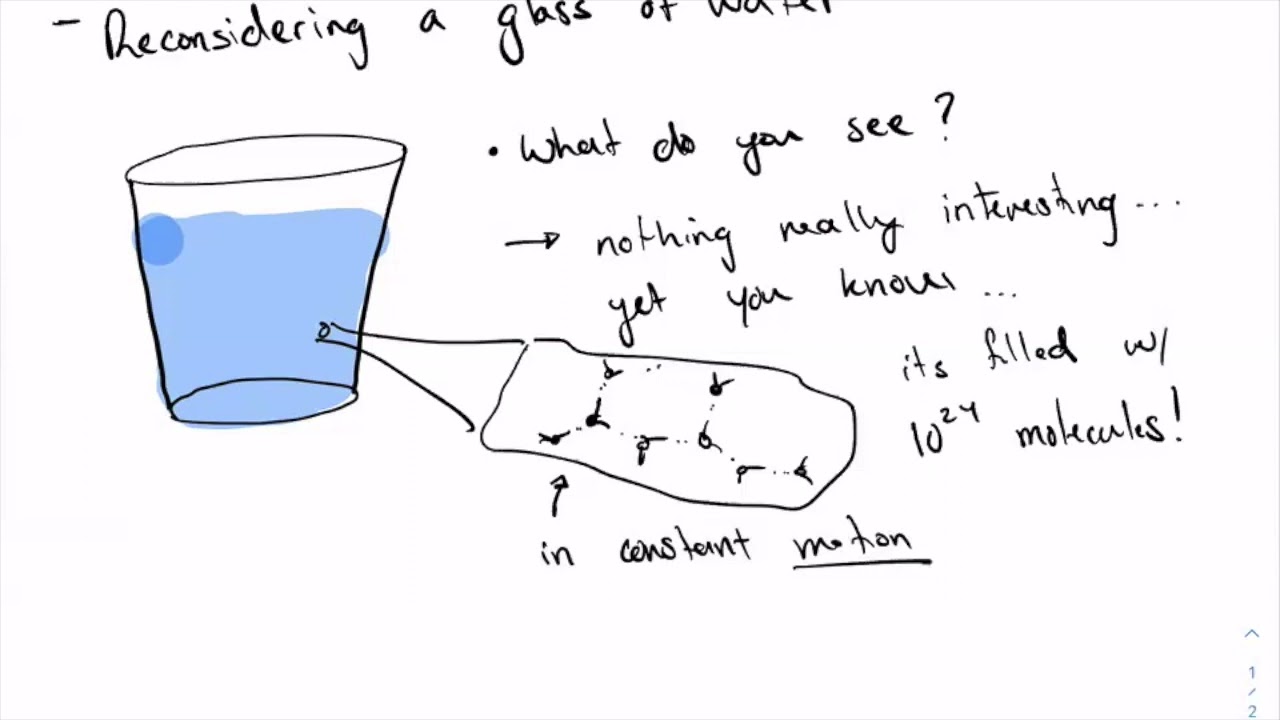 - Reconsidering a glass of water
• What do you see?
→ nothing really interesting...
yet you know ...
its filled w/
10²⁴ molecules!
in constant motion
1
/
2